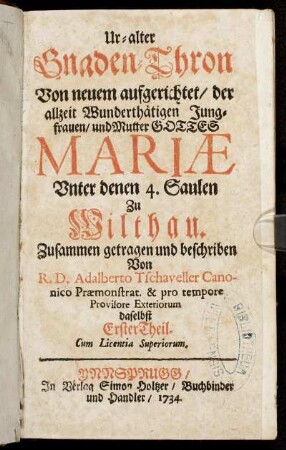 Ur-alter
Gnaden-Thron
Von neuem aufgerichtet/ der
allzeit Wunderthätigen Jung-
frauen/ und Mutter GOTTES
MARIÆ
Unter denen 4. Saulen
Zu
Wilthau.
Zusammen getragen und beschriben
Von
R. D. Adalberto Tschaveller Cano-
nico Præmonstrat. & pro tempore
Provisore Exteriorum
daselbst
Erster Theil.
Cum Licentia Superiorum.
YNNSPRUGG/
In Verlag Simon Holtzer/ Buchbinder
und Handler/ 1734.